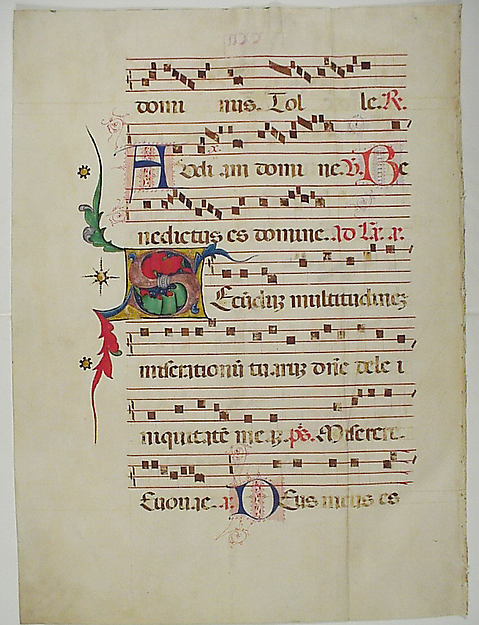 domi nus. Tol le. R.
Audi am domi ne. V. Be
nedictus es domine. Ad
Secūduz multitudinez
miserationū tuaruz dn̄e dele i
niquitatē meaz. ps. Miserere.
Euouae. a. Deus meus es